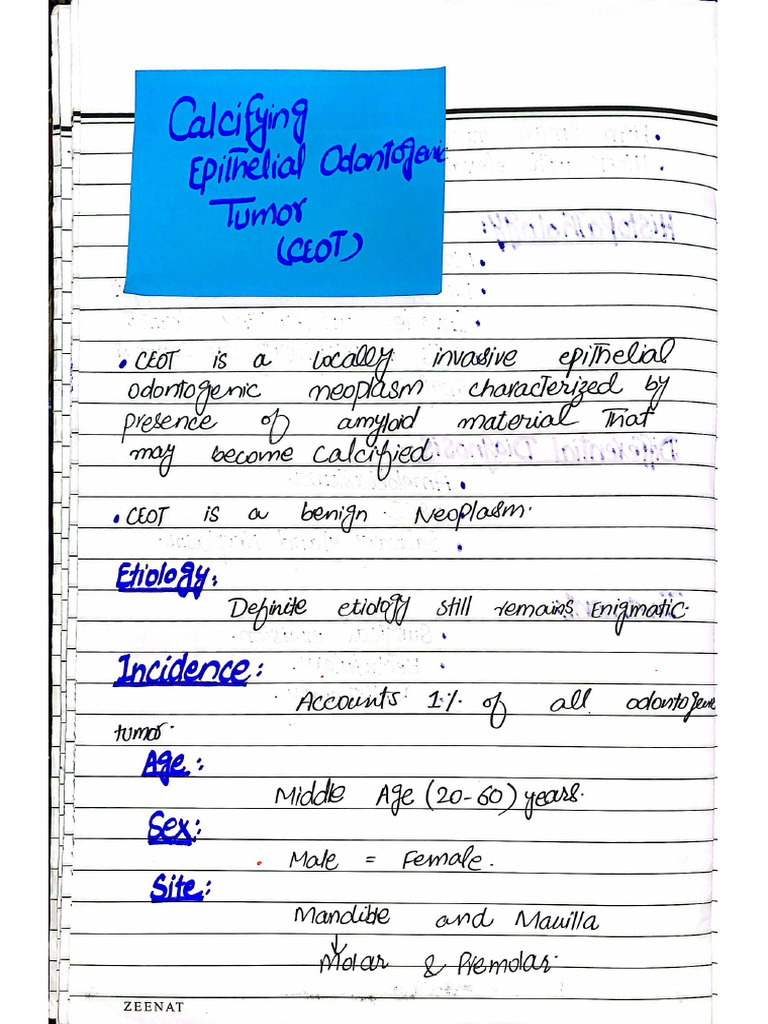 Calcifying
Epithelial Odontogenic
Tumor
(CEOT)
• CEOT is a locally invasive epithelial
odontogenic neoplasm characterized by
presence of amyloid material that
may become calcified
• CEOT is a benign Neoplasm.
Etiology:
Definite etiology still remains Enigmatic.
Incidence:
Accounts 1% of all odontogenic
tumor.
Age:
Middle Age (20-60) years.
Sex:
• Male = Female.
Site:
Mandible and Maxilla
↓
Molar & Premolar.
ZEENAT